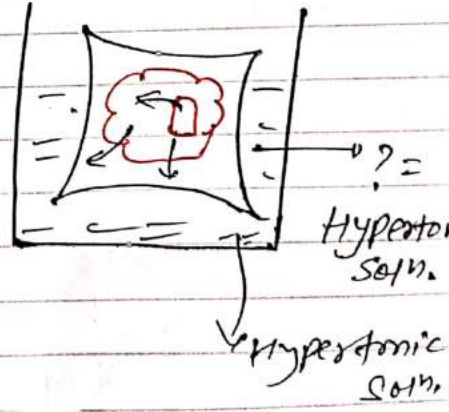 ? =
Hyperto
Soln.
Hypertonic
Soln.